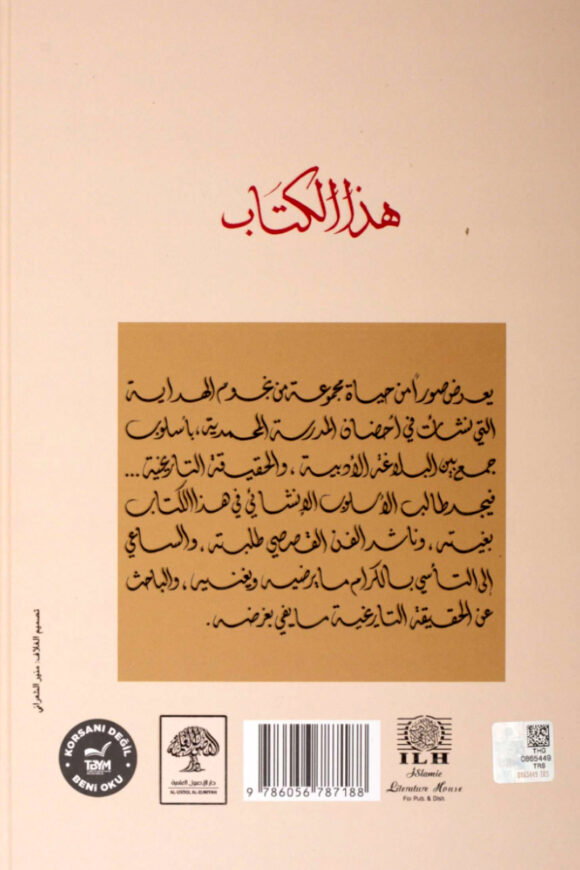 هذا الكتاب
يعرض صوراً من حياة مجموعة من نجوم الهداية
التي نشأت في أحضان المدرسة المحمدية، بأسلوب
جمع بين البلاغة الأدبية، والحقيقة التاريخية ...
فيجد طالب الأسلوب الإنشائي في هذا الكتاب
بغيته، وناشد الفن القصصي طلبته، والساعي
إلى التأسي بالكرام ما يرضيه ويغنيه، والباحث
عن الحقيقة التاريخية ما يفي بغرضه.
تصميم الغلاف: منير الشعراني
KORSANI DEĞİL
TBYM
BENİ OKU
دار الأصول العلمية
AL-USOOL AL-ILMIYYAH
9 786056 787188
ILH
İslamic
Literature House
For Pub. & Dist.
THG
0865449
TRS
0865449 TRS